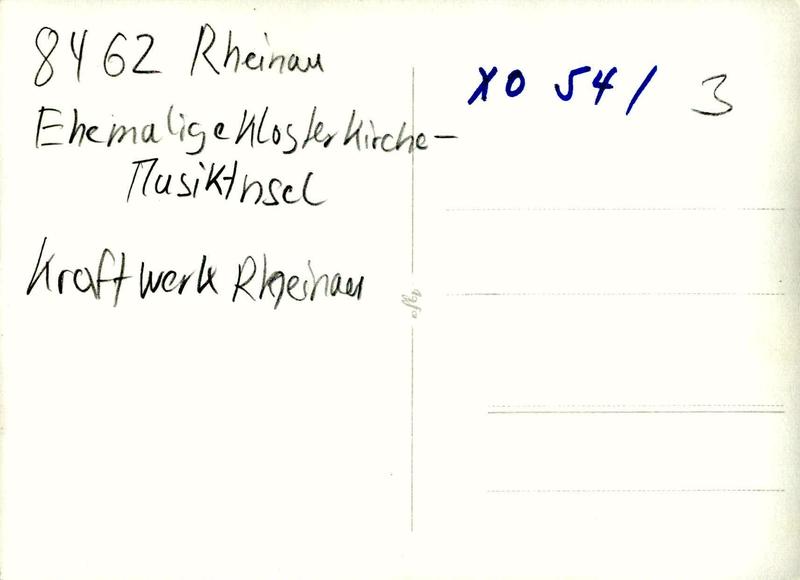 8462 Rheinau
Ehemalige Klosterkirche-
MusikInsel
Kraftwerk Rheinau
XO 54 / 3
Agfa